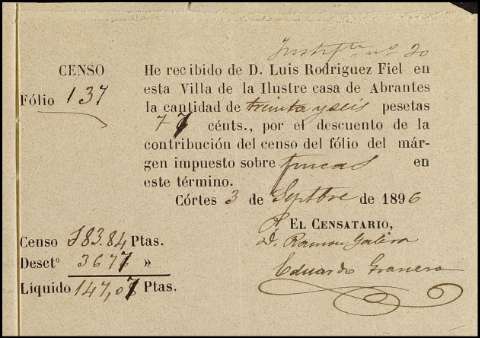 Justifte nº 20
CENSO
Fólio 137
He recibido de D. Luis Rodriguez Fiel en
esta Villa de la Ilustre casa de Abrantes
la cantidad de treinta y seis pesetas
77 cénts., por el descuento de la
contribución del censo del fólio del már-
gen impuesto sobre fincas en
este término.
Córtes 3 de Septbre de 1896
EL CENSATARIO,
D. Ramon
Eduardo Granero
Censo 183.84 Ptas.
Desctº 3677 »
Líquido 147,07 Ptas.